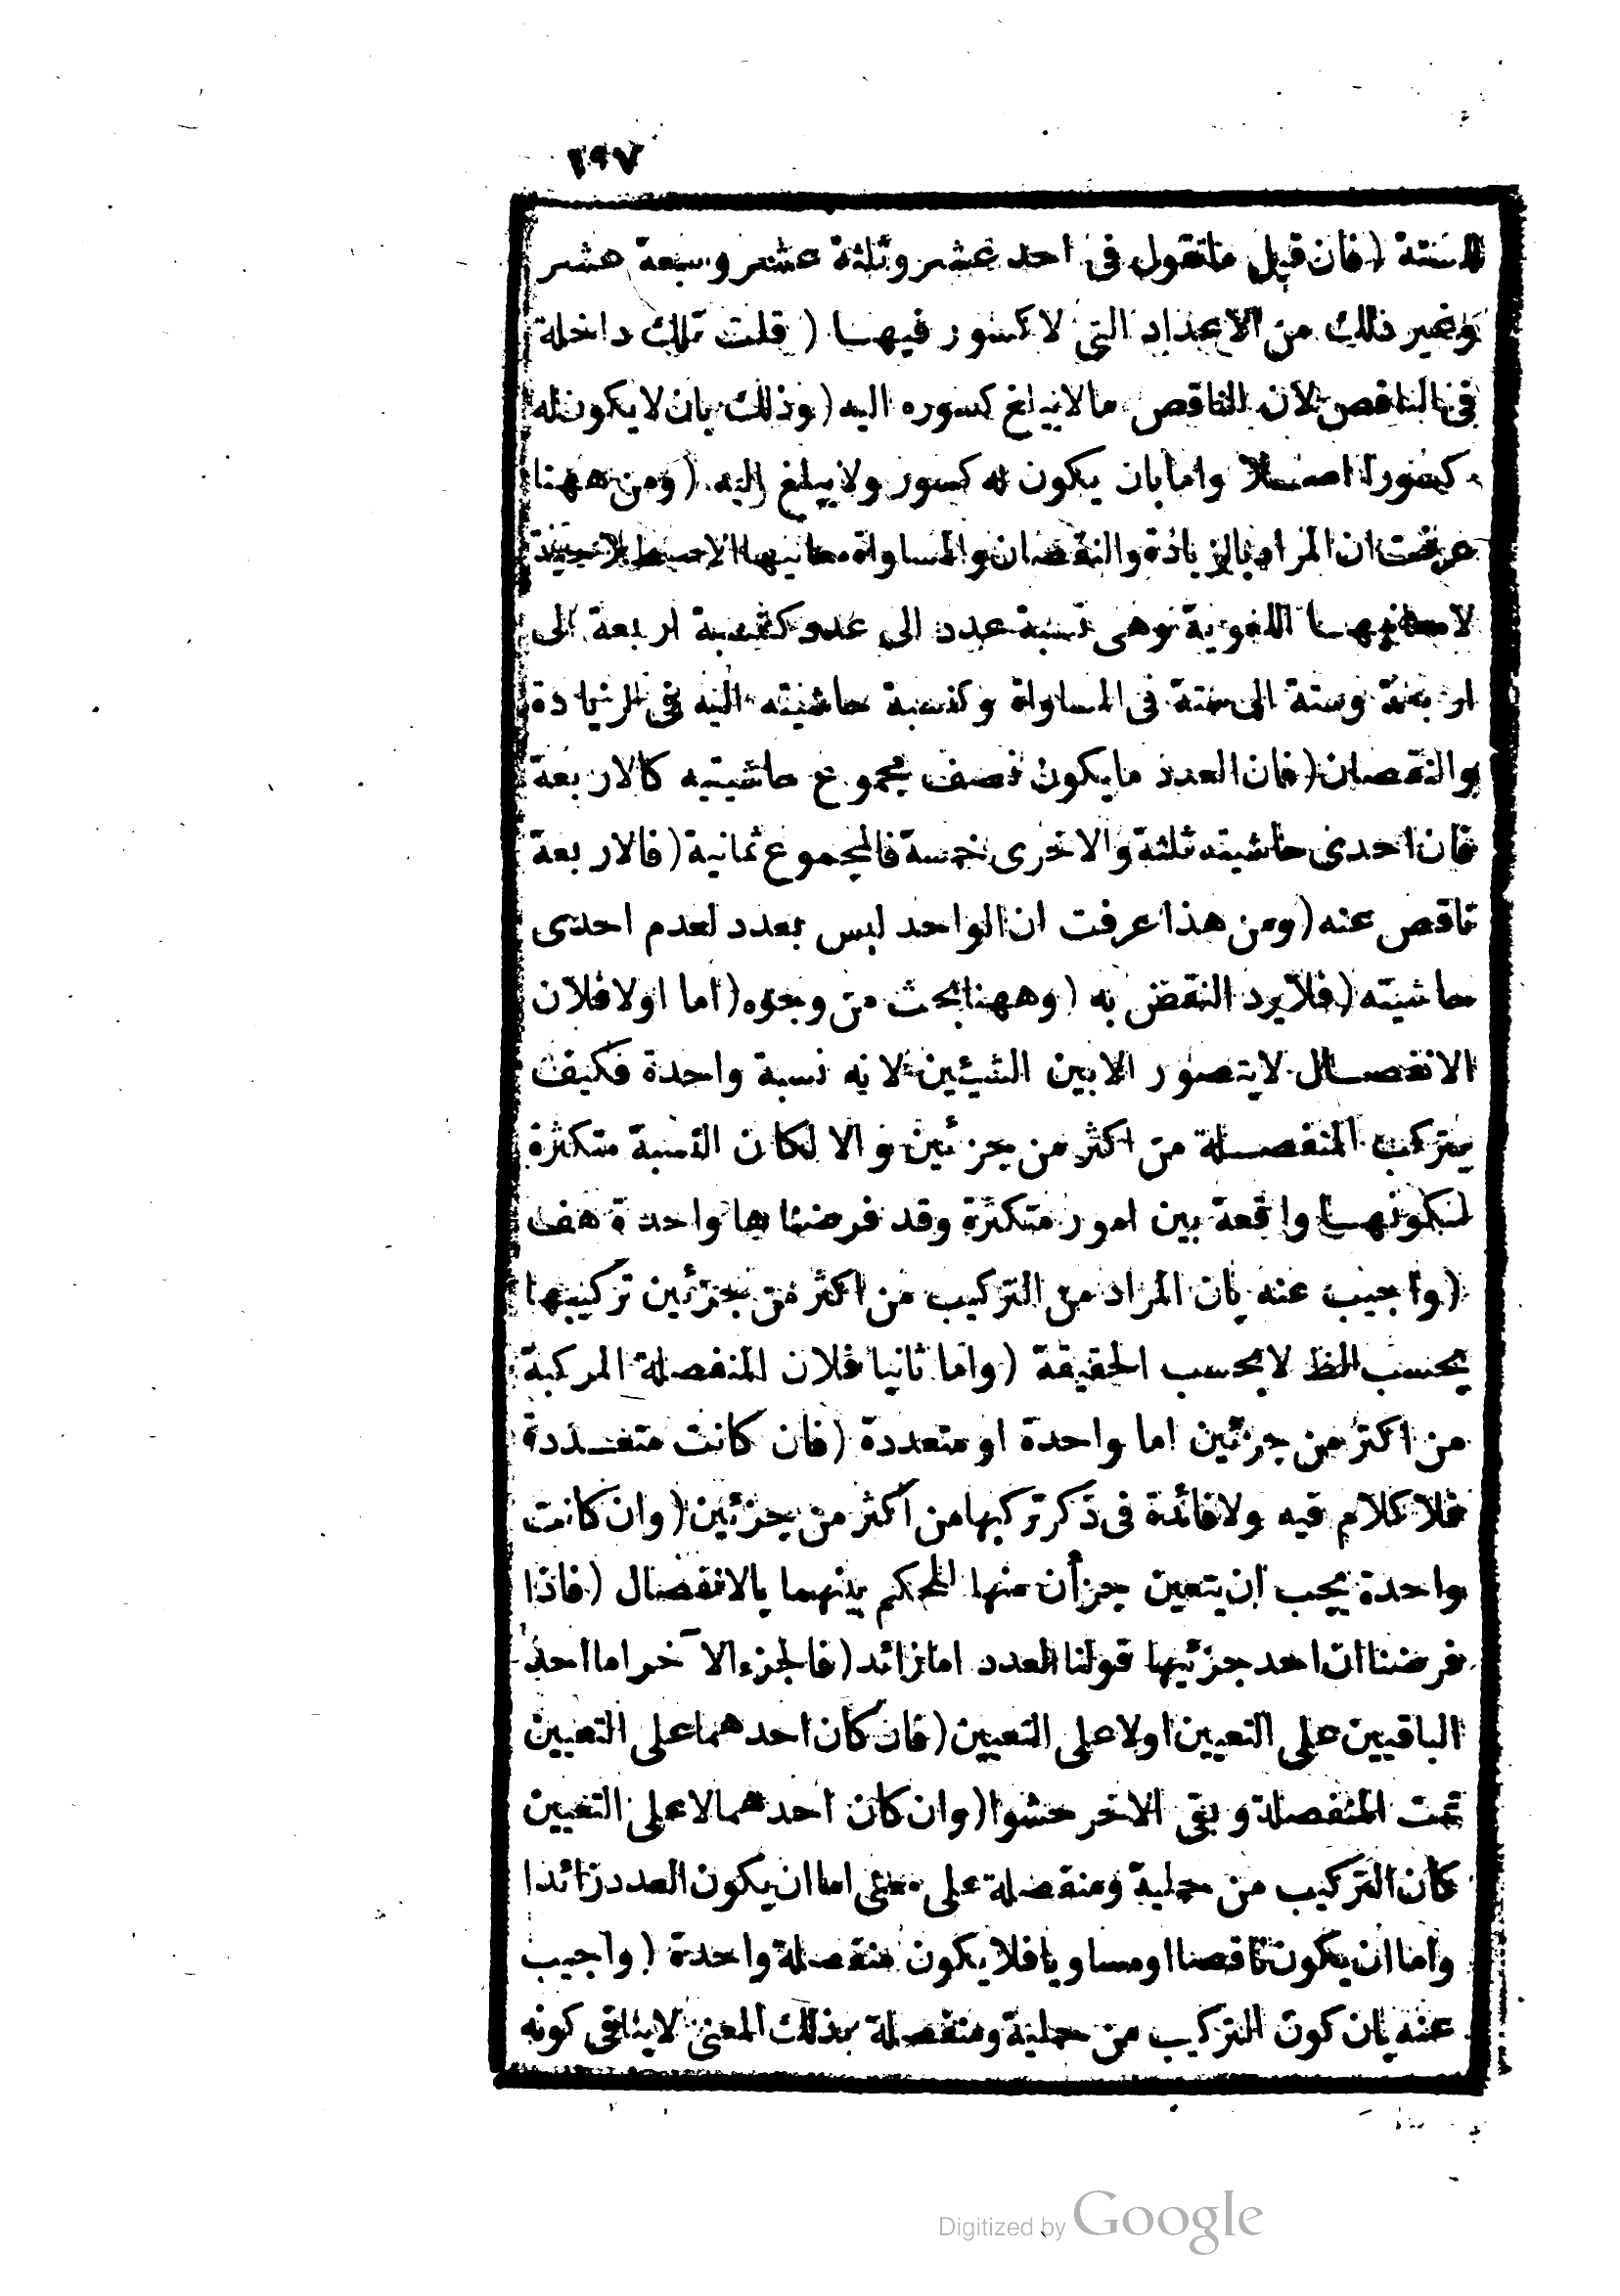 ١٩٧
الستة (فان قيل ما تقول فى احد عشر وثلثة عشر وسبعة عشر
وغير ذلك من الاعداد التى لا كسور فيها (قلت تلك داخلة
فى الناقص لان الناقص ما لا يبلغ كسوره اليه (وذلك بان لا يكون له
كسور اصلا واما بان يكون له كسور ولا يبلغ اليه (ومن ههنا
عرفت ان المراد بالزيادة والنقصان والمساواة معانيها الاصطلاحية
لا معانيها اللغوية وهى نسبة عدد الى عدد كنسبة اربعة الى
اربعة وستة الى ستة فى المساواة وكنسبة حاشيته اليه فى الزيادة
والنقصان (فان العدد ما يكون نصف مجموع حاشيتيه كالاربعة
فان احدى حاشيته ثلثة والاخرى خمسة فالمجموع ثمانية (فالاربعة
ناقص عنه (ومن هذا عرفت ان الواحد ليس بعدد لعدم احدى
حاشيته (فلا يرد النقض به (وههنا بحث من وجوه (اما اولا فلان
الانفصال لا يتصور الا بين الشيئين لانه نسبة واحدة فكيف
يتركب المنفصلة من اكثر من جزئين والا لكان النسبة متكثرة
لكونها واقعة بين امور متكثرة وقد فرضناها واحدة هف
(واجيب عنه بان المراد من التركيب من اكثر من جزئين تركيبها
بحسب الظ لا بحسب الحقيقة (واما ثانيا فلان المنفصلة المركبة
من اكثر من جزئين اما واحدة او متعددة (فان كانت متعددة
فلا كلام فيه ولا فائدة فى ذكر تركبها من اكثر من جزئين (وان كانت
واحدة يجب ان يتعين جزأن منها للحكم بينهما بالانفصال (فاذا
فرضنا ان احد جزئيها قولنا العدد اما زائد (فالجزء الآخر اما احد
الباقيين على التعيين اولا على التعيين (فان كان احدهما على التعيين
تمت المنفصلة وبقى الاخر حشوا (وان كان احدهما لا على التعيين
كان التركيب من حملية ومنفصلة على معنى اما ان يكون العدد زائدا
واما ان يكون ناقصا او مساويا فلا يكون منفصلة واحدة (واجيب
عنه بان كون التركيب من حملية ومنفصلة بذلك المعنى لا ينافى كونه
Digitized by Google